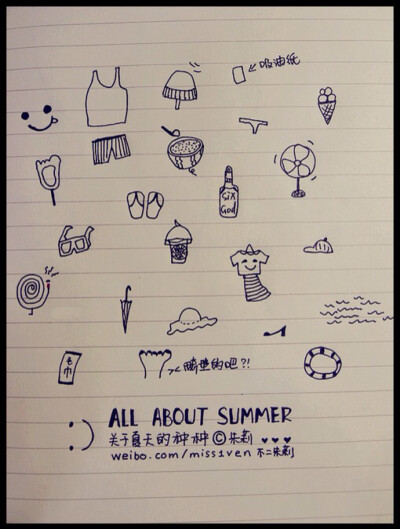 吸油纸
Six
God
毛
巾
晒黑的吧?!
ALL ABOUT SUMMER
关于夏天的种种 © 朱莉 ♥ ♥ ♥
weibo.com/miss1ven 不二朱莉